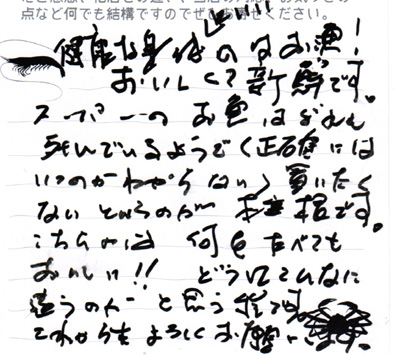 点など何でも結構ですのでぜひお聞かせください。
健康な身体のはお漁!
おいしくて新鮮です。
スーパーのお魚はぞれも
死んでいるようで(正確には
いつのかわからない)買いたく
ないというのが本音です。
こちらのは何をたべても
おいしい!! どうしてこんなに
違うのか"と思う程です。
これからもよろしくお願いします。